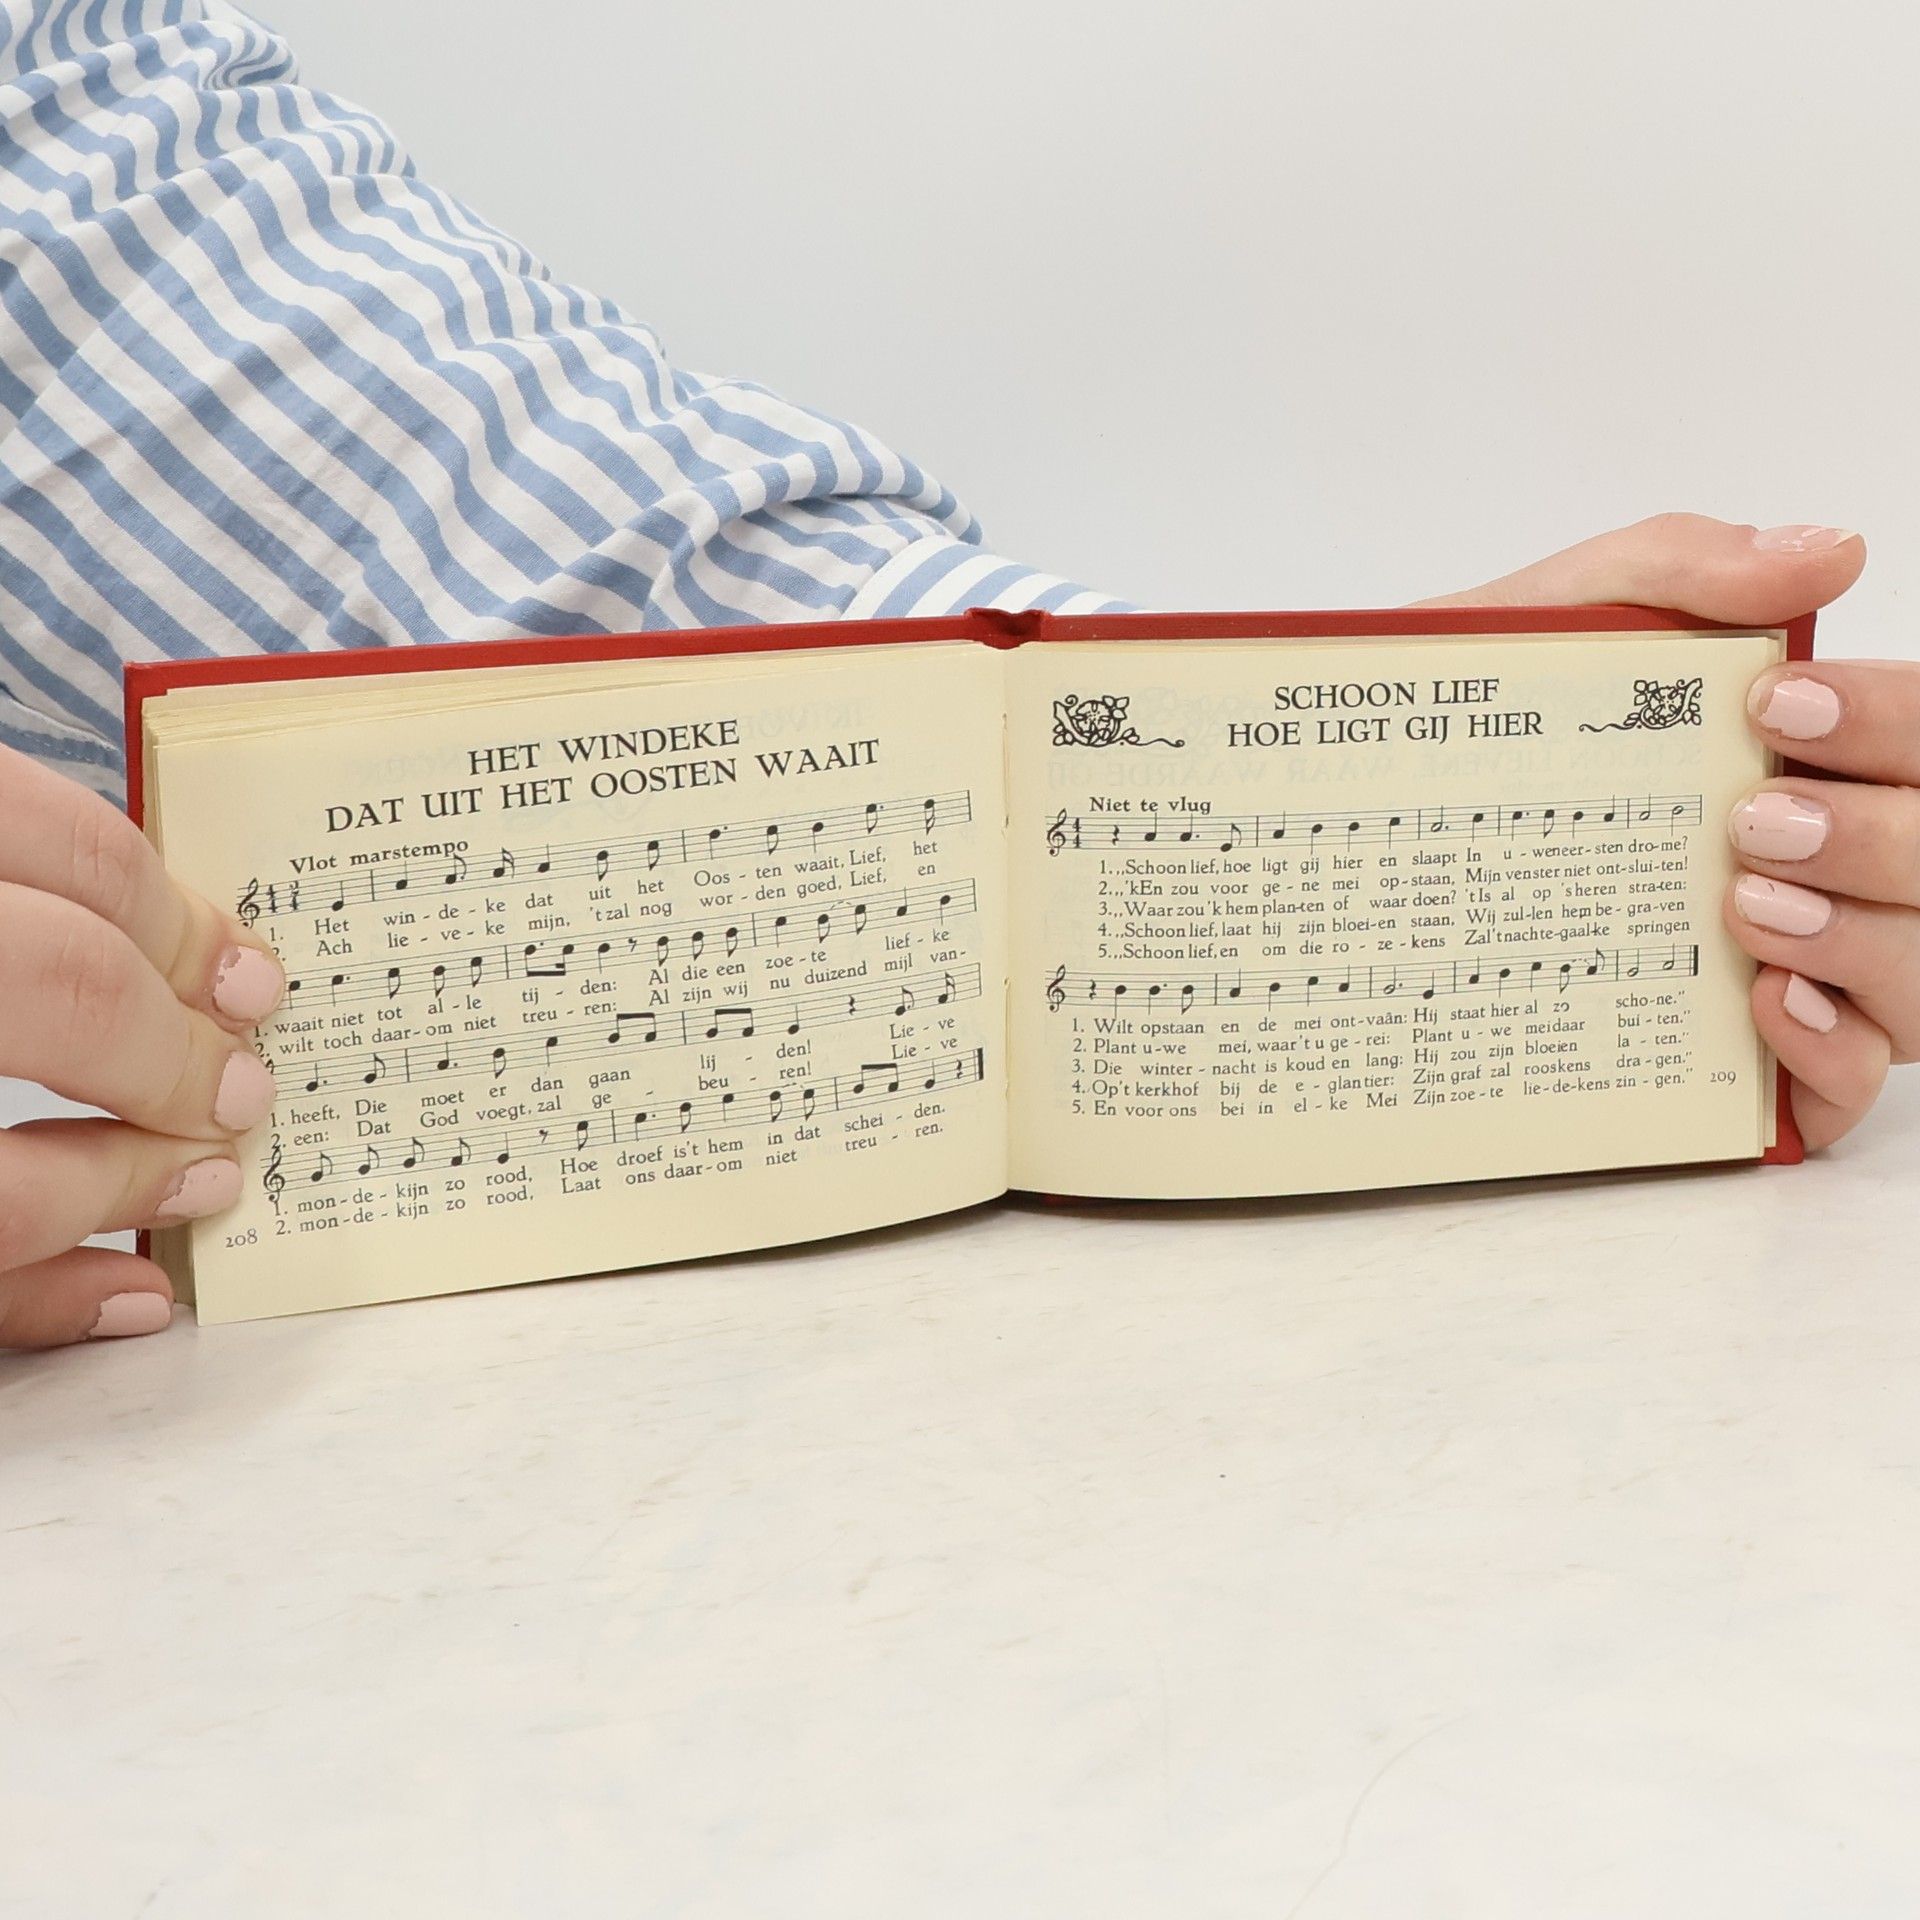 HET WINDEKE
DAT UIT HET OOSTEN WAAIT
Vlot marstempo
1. Het win - de - ke dat uit het Oos - ten waait, Lief, het
2. Ach lie - ve - ke mijn, 't zal nog wor - den goed, Lief, en
1. waait niet tot al - le tij - den: Al die een zoe - te lief - ke
2. wilt toch daar - om niet treu - ren: Al zijn wij nu duizend mijl van-
1. heeft, Die moet er dan gaan lij - den! Lie - ve
2. een: Dat God voegt, zal ge - beu - ren! Lie - ve
1. mon - de - kijn zo rood, Hoe droef is't hem in dat schei - den.
2. mon - de - kijn zo rood, Laat ons daar - om niet treu - ren.
208
SCHOON LIEF
HOE LIGT GIJ HIER
Niet te vlug
1. „Schoon lief, hoe ligt gij hier en slaapt In u - weneer - sten dro - me?
2. „'kEn zou voor ge - ne mei op - staan, Mijn venster niet ont - slui - ten!
3. „Waar zou 'k hem plan - ten of waar doen? 't Is al op 's heren stra - ten:
4. „Schoon lief, laat hij zijn bloei - en staan, Wij zul - len hem be - gra - ven
5. „Schoon lief, en om die ro - ze - kens Zal 't nachte - gaal - ke springen
1. Wilt opstaan en de mei ont - vaân: Hij staat hier al zo scho - ne."
2. Plant u - we mei, waar't u ge - rei: Plant u - we mei daar bui - ten."
3. Die winter - nacht is koud en lang: Hij zou zijn bloeien la - ten."
4. Op't kerkhof bij de e - glantier: Zijn graf zal rooskens dra - gen."
5. En voor ons bei in el - ke Mei Zijn zoe - te lie - de - kens zin - gen."
209